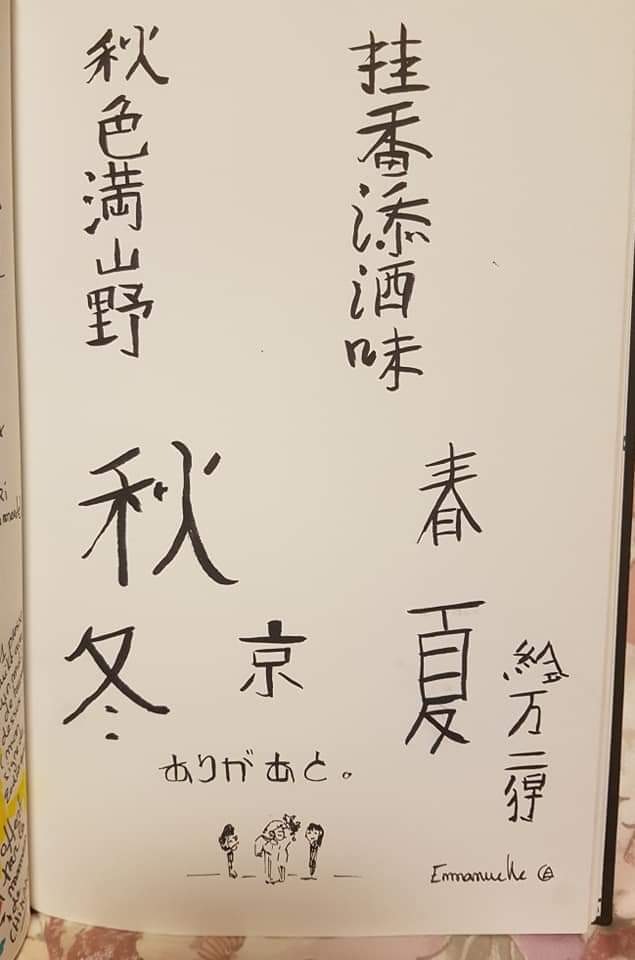 挂香添酒味
秋色満山野
春
夏
秋
冬
京
絵万二得
ありがあと。
Emmanuelle